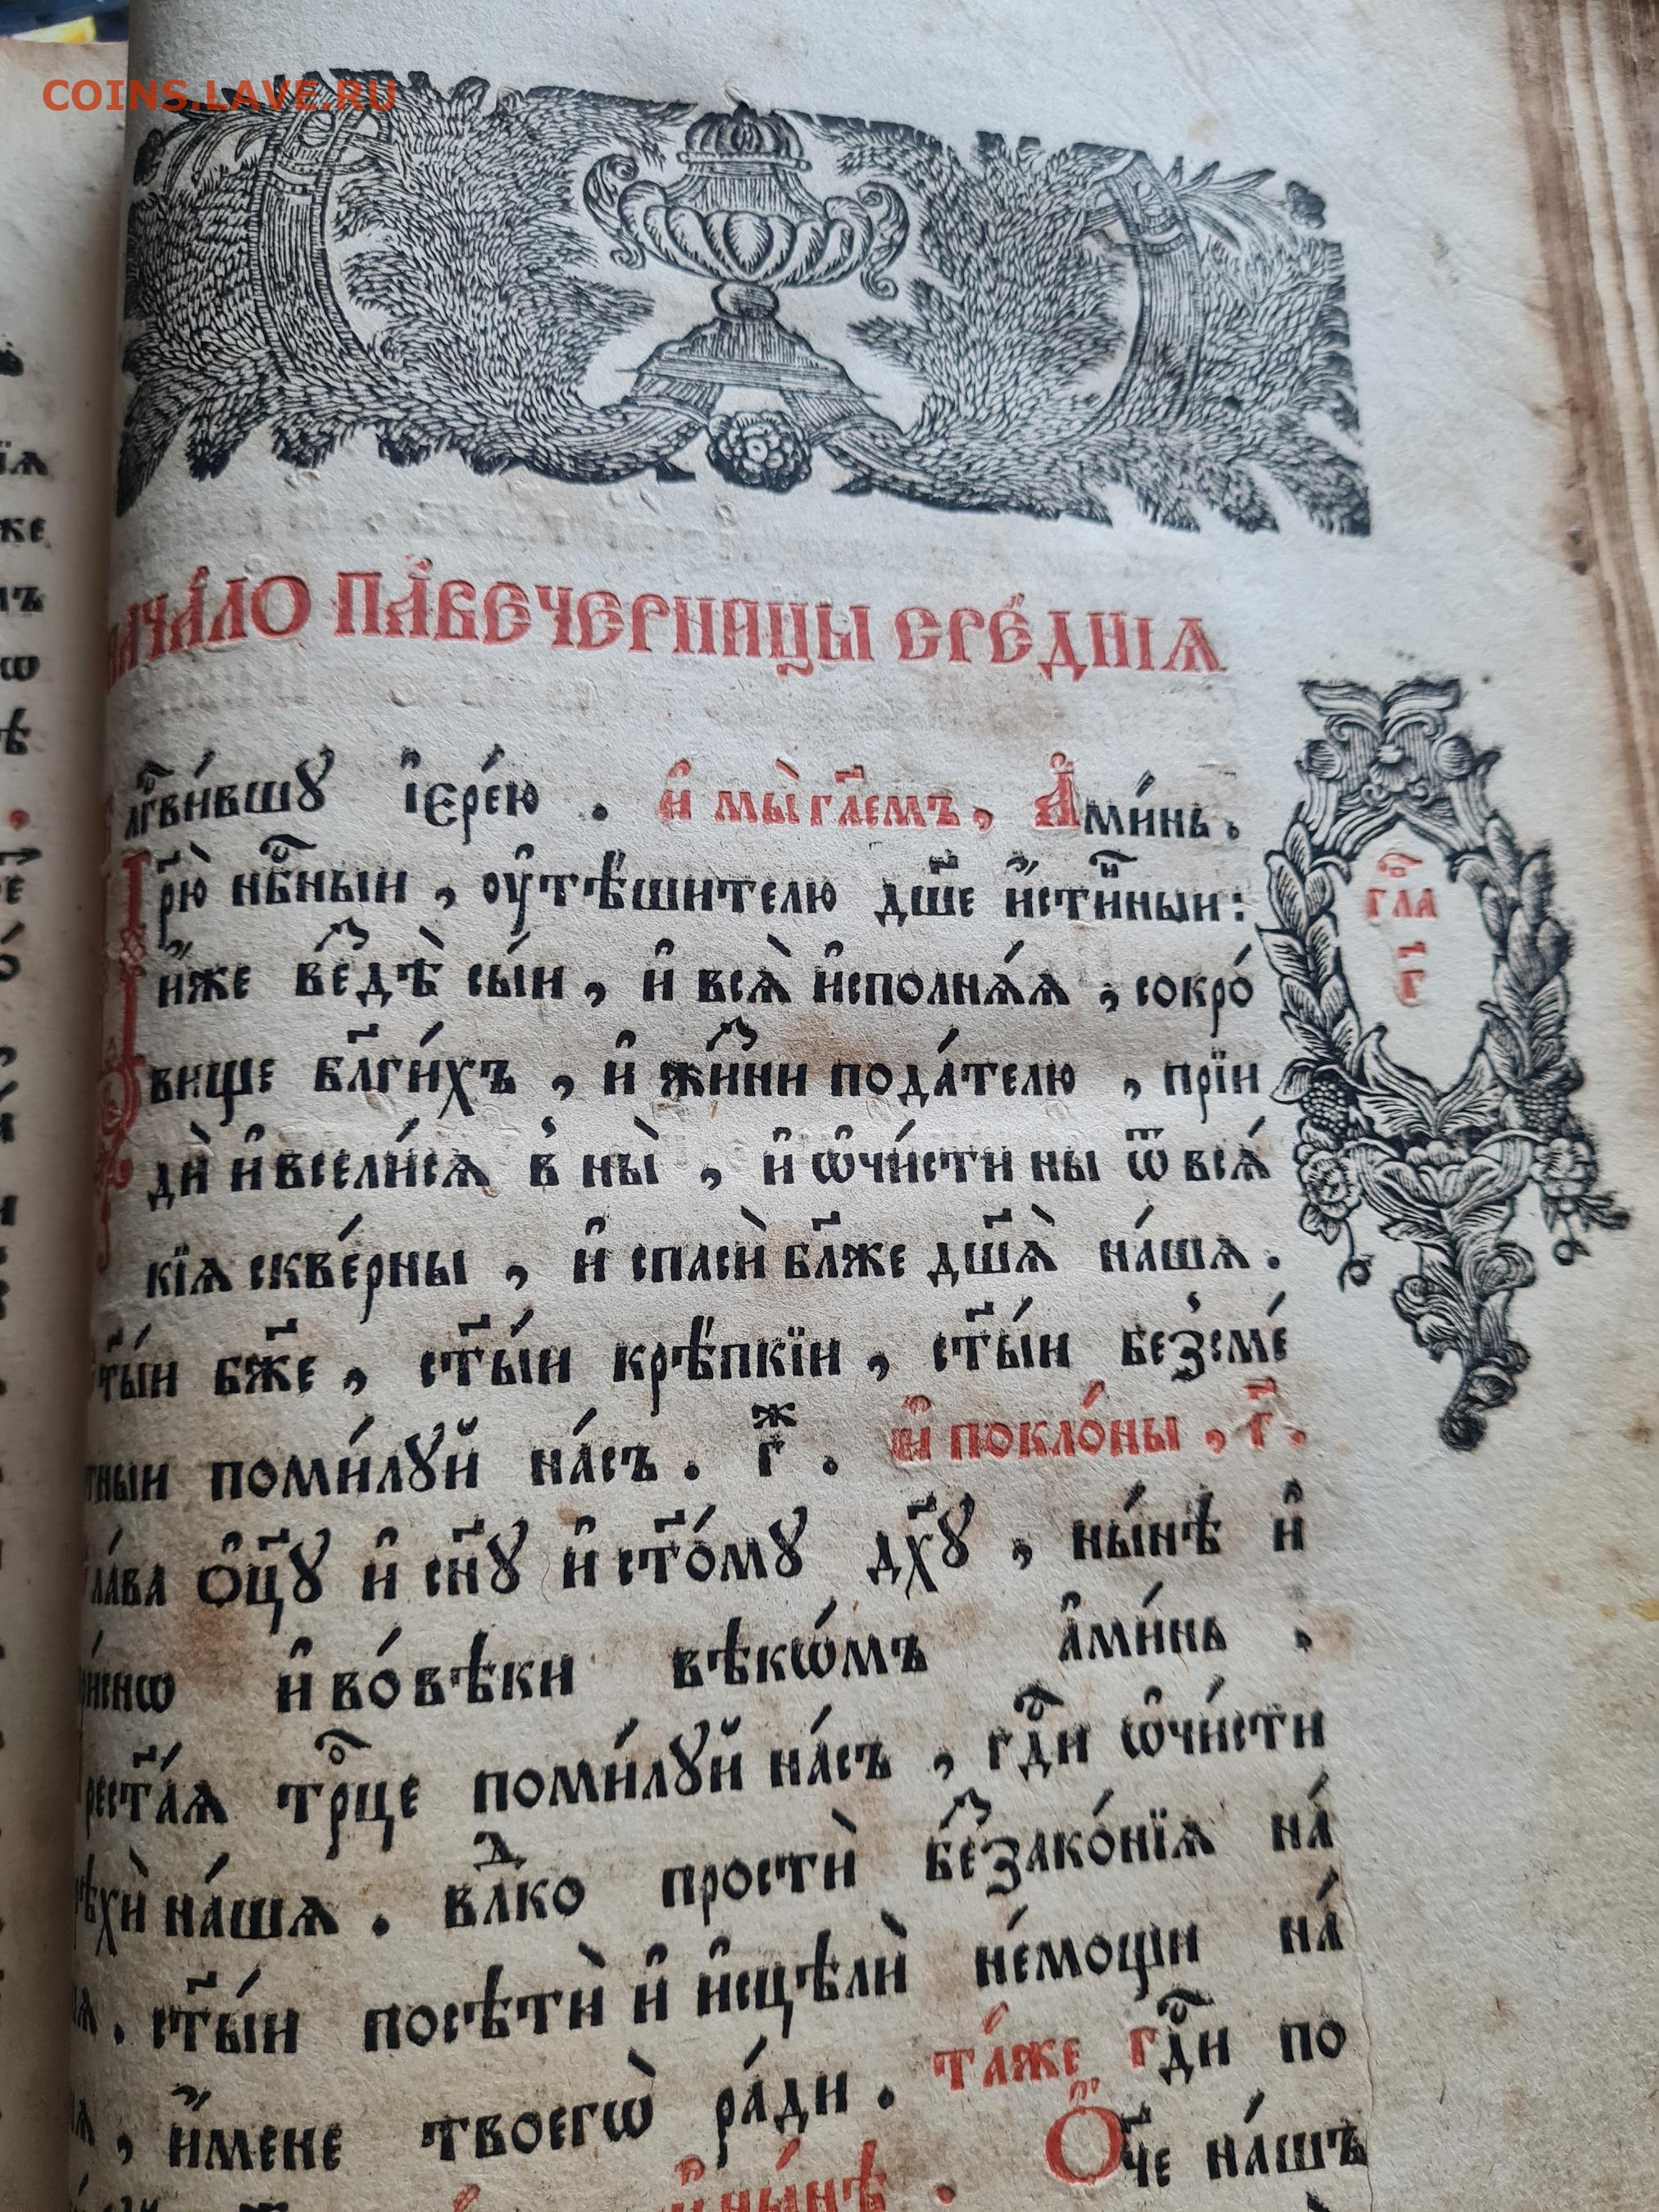 COINS.LAVE.RU
НАЧА́ЛО ПА́ВЕЧЕРНИЦЫ СРЕ́ДНІѦ
лгⷭ҇ви́вшꙋ і҆ере́ю . И҆ мы̀ гл҃емъ, А҆ми́нь.
Ц҃рю̀ нбⷭ҇ныи , оу҆тѣ́шителю дш҃е и҆́стинныи :
и҆́же везⷣѣ̀ сы́и , и҆ всѧ̀ и҆сполнѧ́ѧ , сокро́
вище бл҃ги́хъ , и҆ жи́зни пода́телю , прїи
дѝ и҆ всели́сѧ в ны̀ , и҆ ѡ҆чи́сти ны ѿ всѧ́
кїѧ скве́рны , и҆ спасѝ бл҃же дш҃ѧ̀ на́шѧ .
ст҃ы́и бж҃е , ст҃ы́и крѣ́пкїи , ст҃ы́и безсме́
ртныи поми́лꙋй на́съ . г҃ⷤ . И҆ покло́ны , г҃ .
сла́ва ѻ҆ц҃ꙋ̀ и҆ сн҃ꙋ и҆ ст҃о́мꙋ дх҃ꙋ , ны́нѣ и҆
при́снѡ и҆ во́ вѣки вѣкѡ́мъ а҆ми́нь .
прест҃а́ѧ трⷪ҇це поми́лꙋй на́съ , гдⷭ҇и ѡ҆чи́сти
грѣхѝ на́шѧ . влⷣко простѝ беззако́нїѧ на́
шѧ . ст҃ы́и посѣтѝ и҆ и҆сцѣлѝ не́мощи на́
шѧ , и҆́мене твоегѡ̀ ра́ди . та́же гдⷭ҇и по
Ѻ҆́ч҃е на́шъ
и҆ ны́нѣ .
глаⷡ҇
г҃